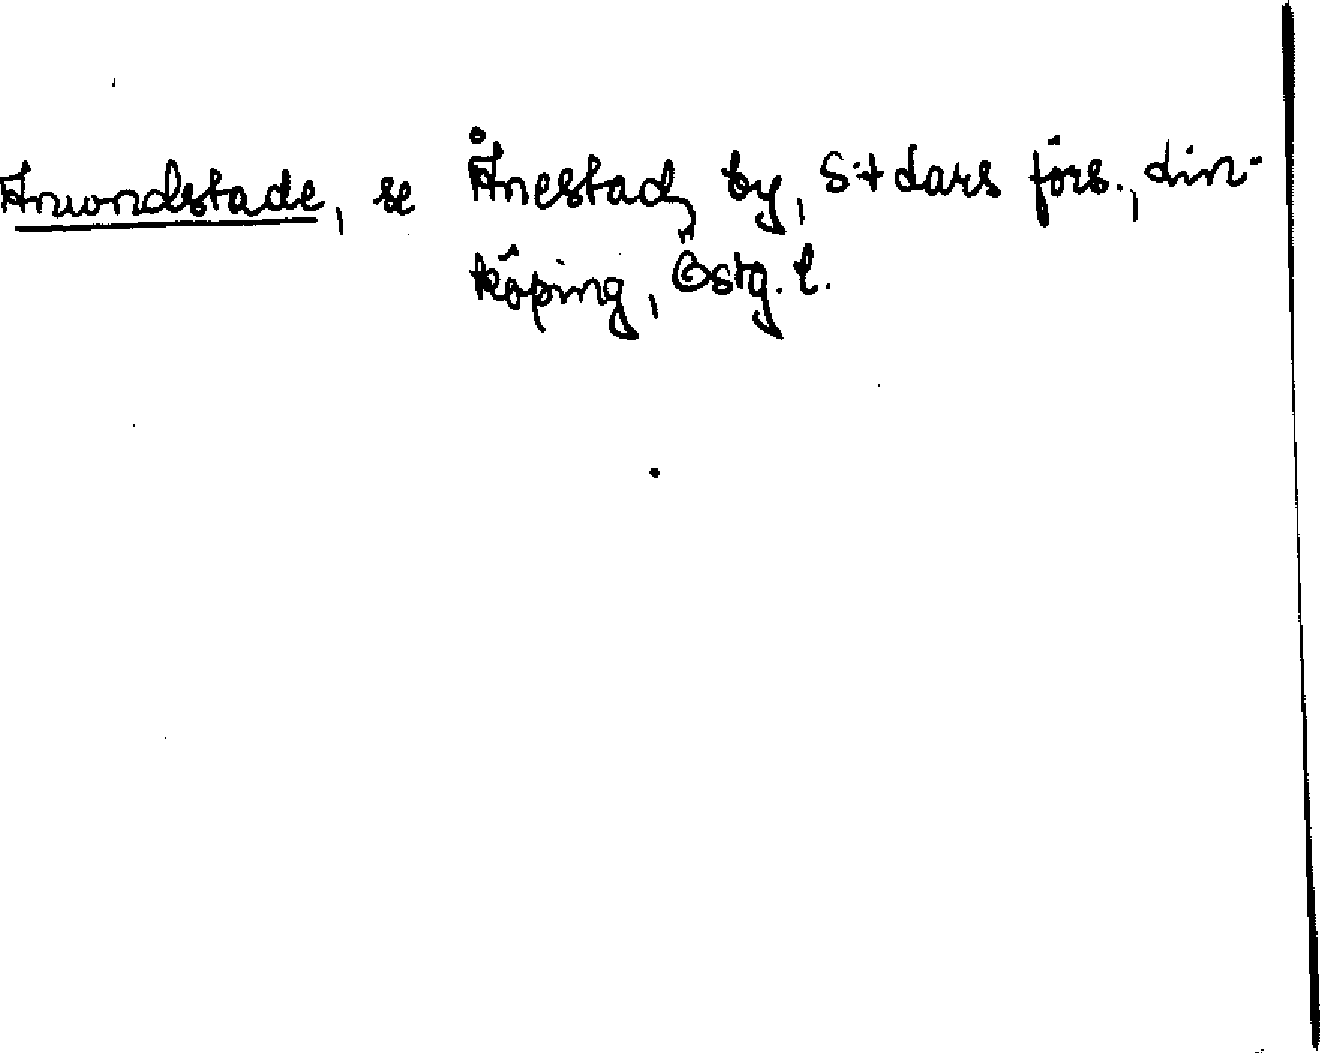 Anundstade, se Ånestad, by, S:t Lars förs., Lin-
köping, Östg. l.